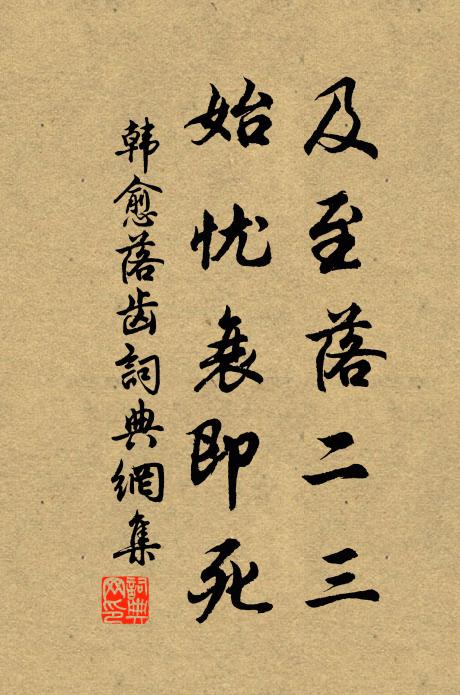 及至落二三
始忧衰即死
韩愈落齿詞典網集
詞典网印